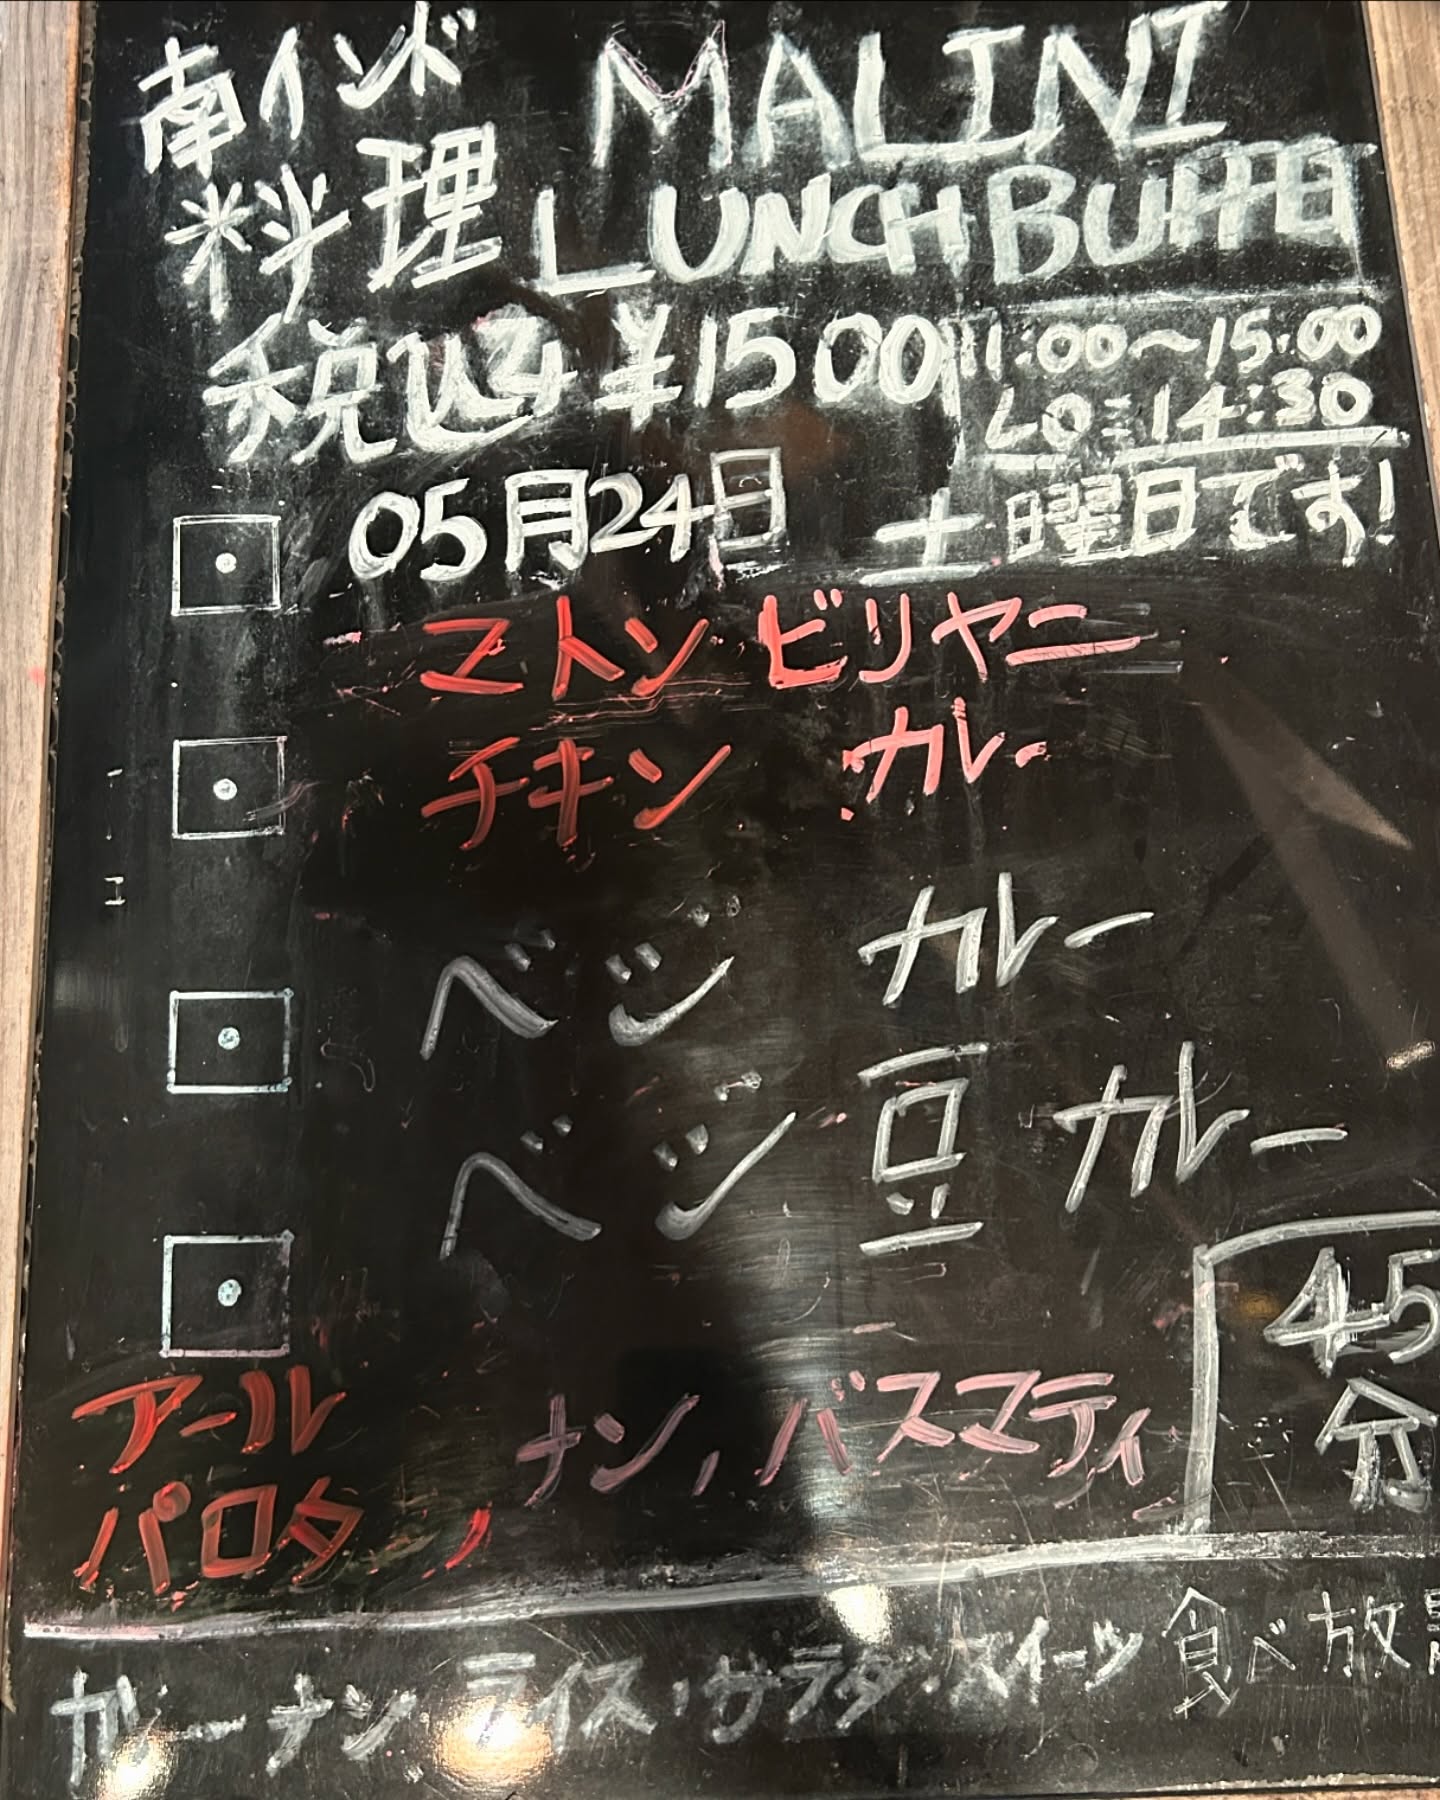 南インド MALINI
料理 LUNCH BUFFET
税込み ¥1500 11:00～15:00
LO:14:30
05月24日 土曜日です!
マトン ビリヤニ
チキン カレー
ベジ カレー
ベジ 豆 カレー
アール
パロタ, ナン, バスマティ
45
分
カレー ナン ライス・サラダ・スイーツ 食べ放